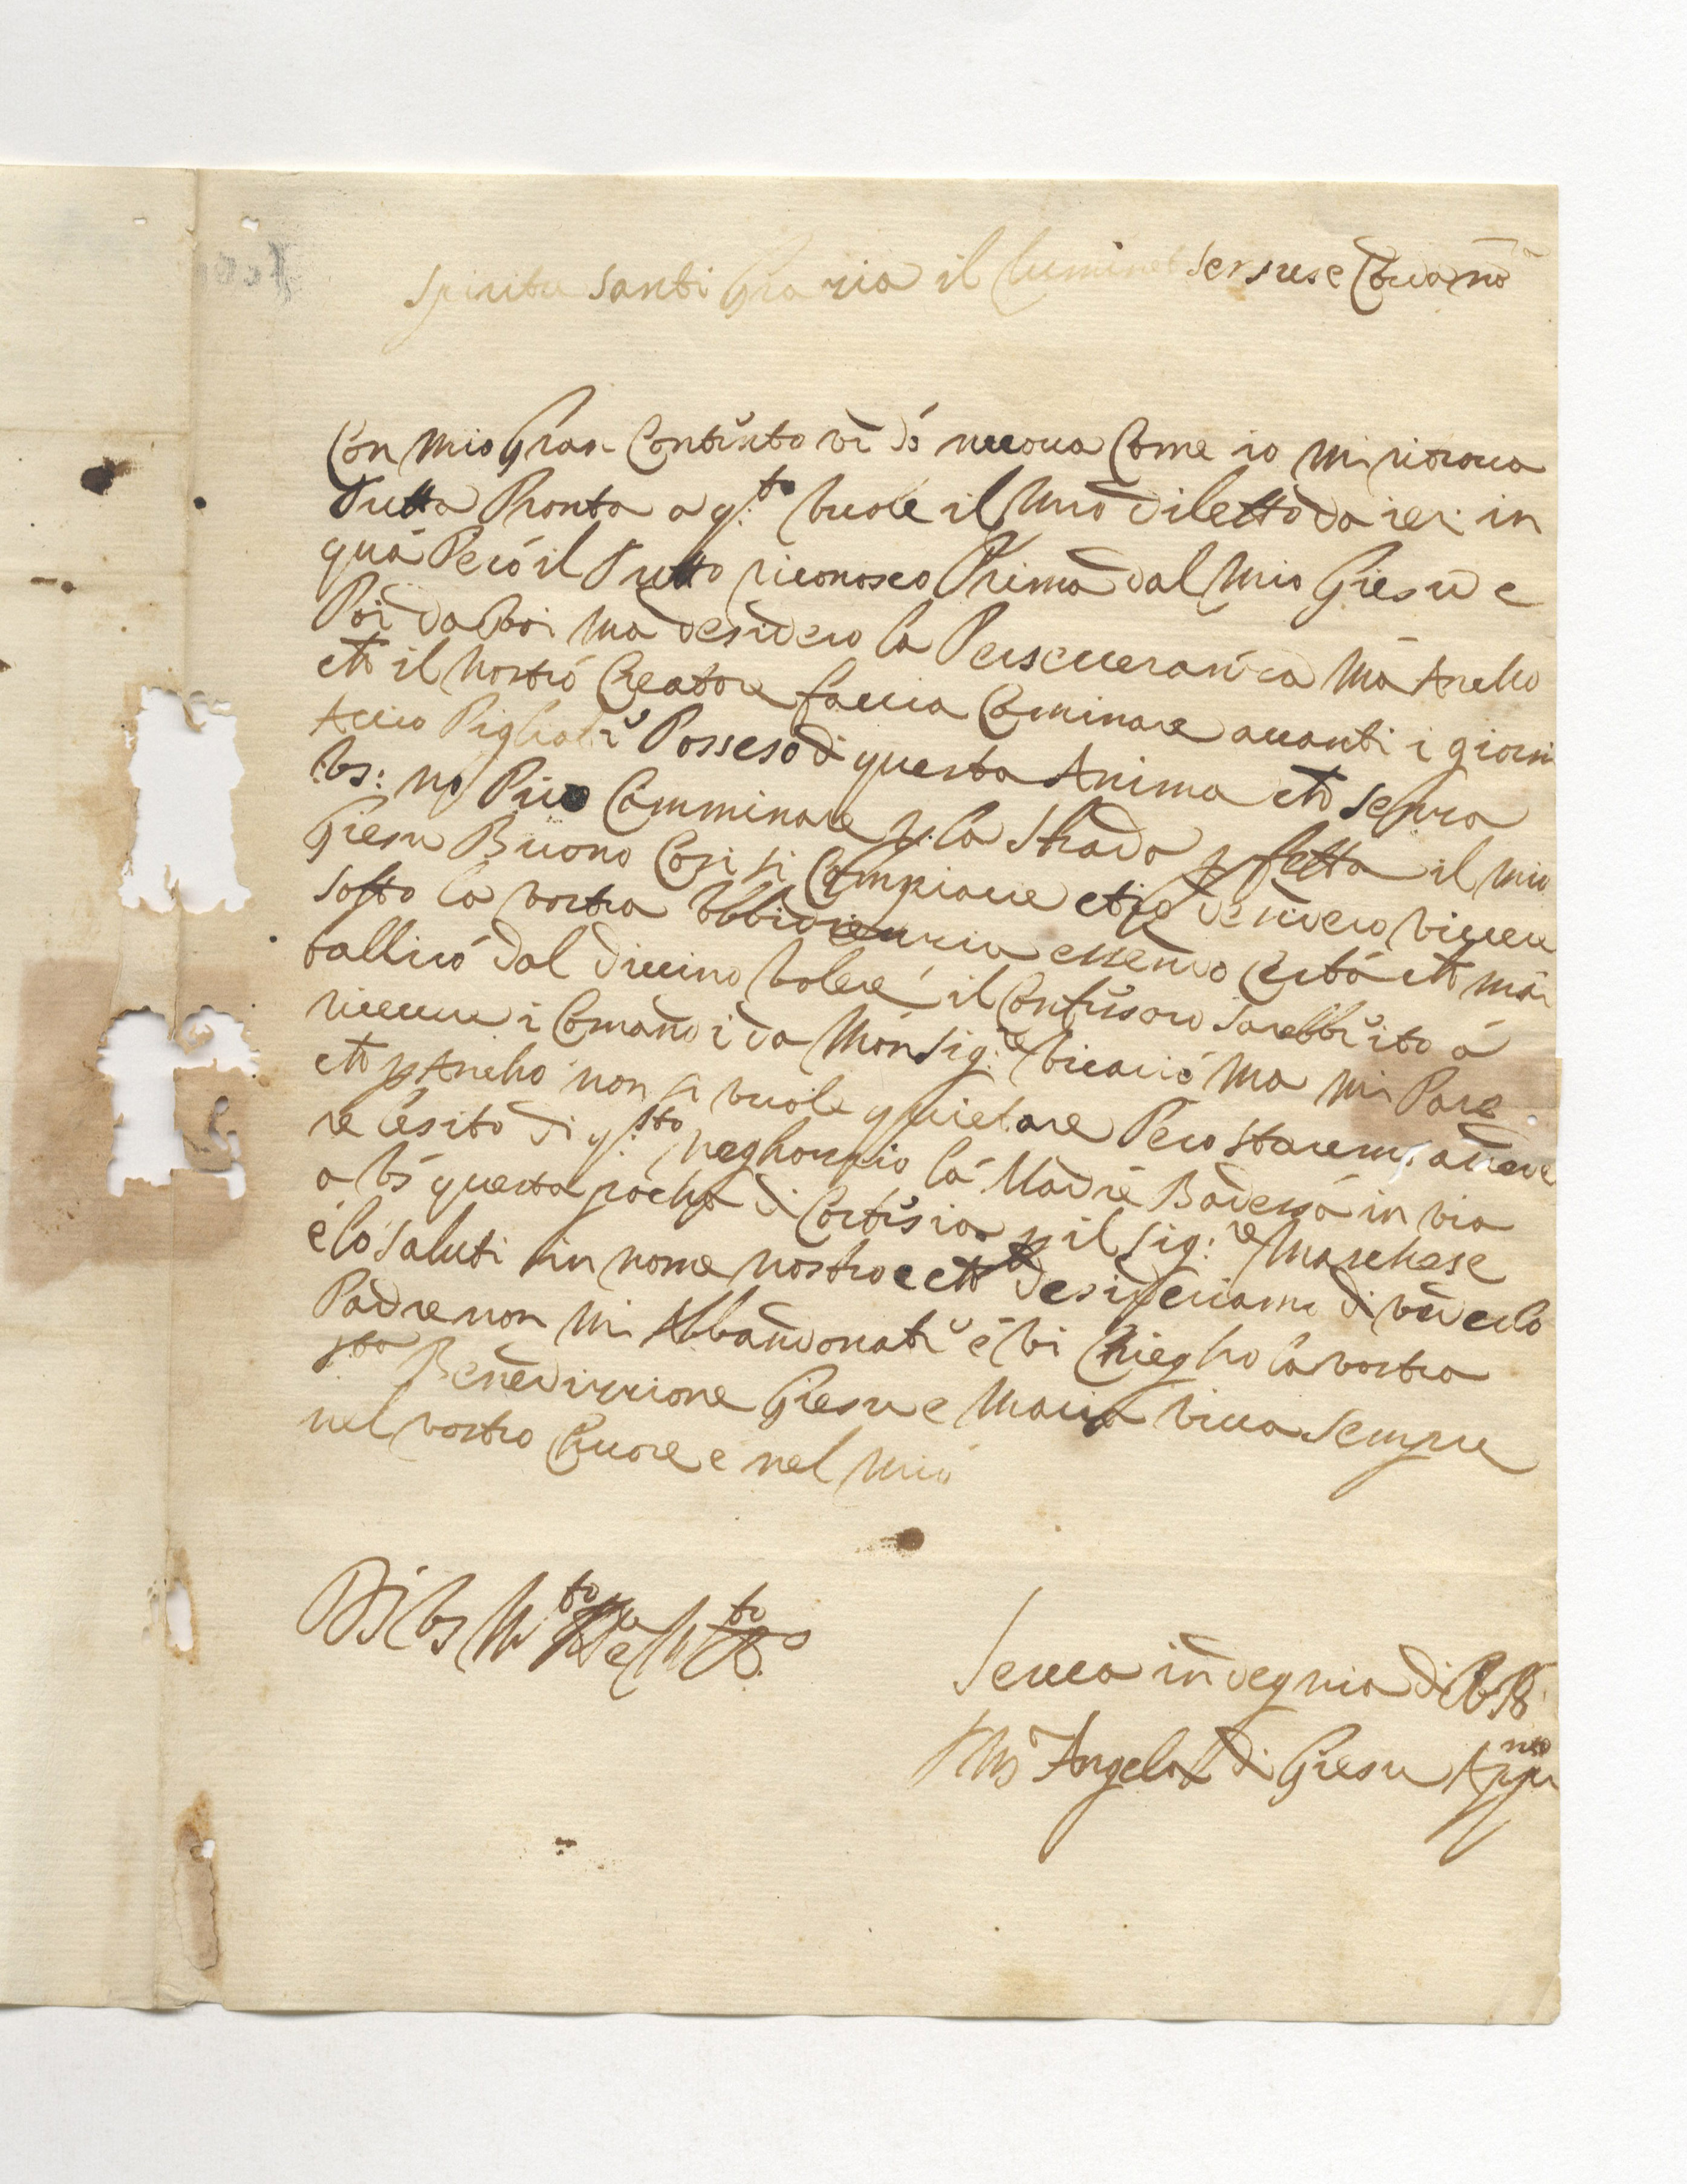 Spiritu Santi Grazia il luminet sensus e Cuor no
Con mio Gran Contento vi dó nuova Come io mi ritrova
Tutta Pronta a q:to vuole il mio diletto da ieri in
quá Peró il Tutto riconosco Prima dal mio Giesu e
Poi da Voi ma desidero la Perseveranza má Anelo
che il nostró Creatore faccia Cominare avanti i giorni
Accio Pigliate Posseso di questa Anima che senza
Vs: no Puo Camminare p. la Strada p fetta il mio
Giesu Buono Cosi si Compiace che io desidero vivere
sotto la vostra Obbidienzia essendo Certá che mai
falliró dal divino Volere il Confesore sarebbe ito á
ricevere i Comandi da Monsig:re Vicarió ma mi Pare
che p Ancho non si vuole quietare Pero staremo a vede
re lesito di q:sto neghonzio lá Madre Badessá in via
a Vs questa pocha di Cortesia p il Sig:re Marchese
é ló saluti in nome nostro e che desideriamo di vederlo
Padre non mi Abbandonate é vi Chiegho la vostra
sta Benedizzione Giesu e Maria viva sempre
nel vostro Cuore e nel mió
Di Vs M to Rde M to
Serva indegnia di
Angela di Giesu Appa